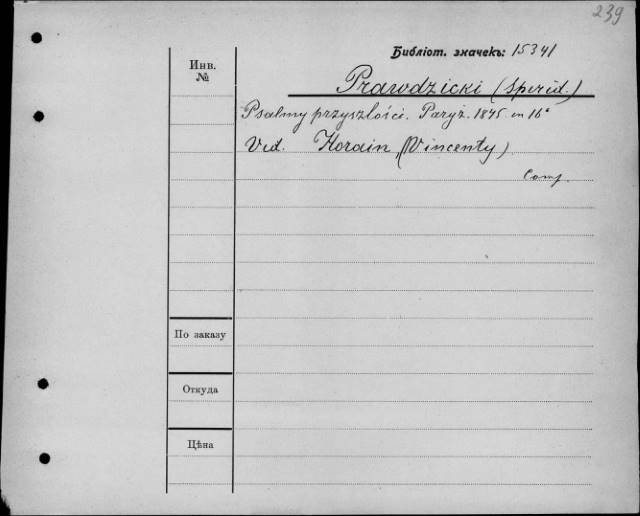 239
Библіот. значекъ: 15341
Инв.
№
Prawdzicki (Spirid.)
Psalmy przyszłości. Paryż. 1845 in 16°
Vid. Korain, (Vincenty)
Comp.
По заказу
Откуда
Цѣна